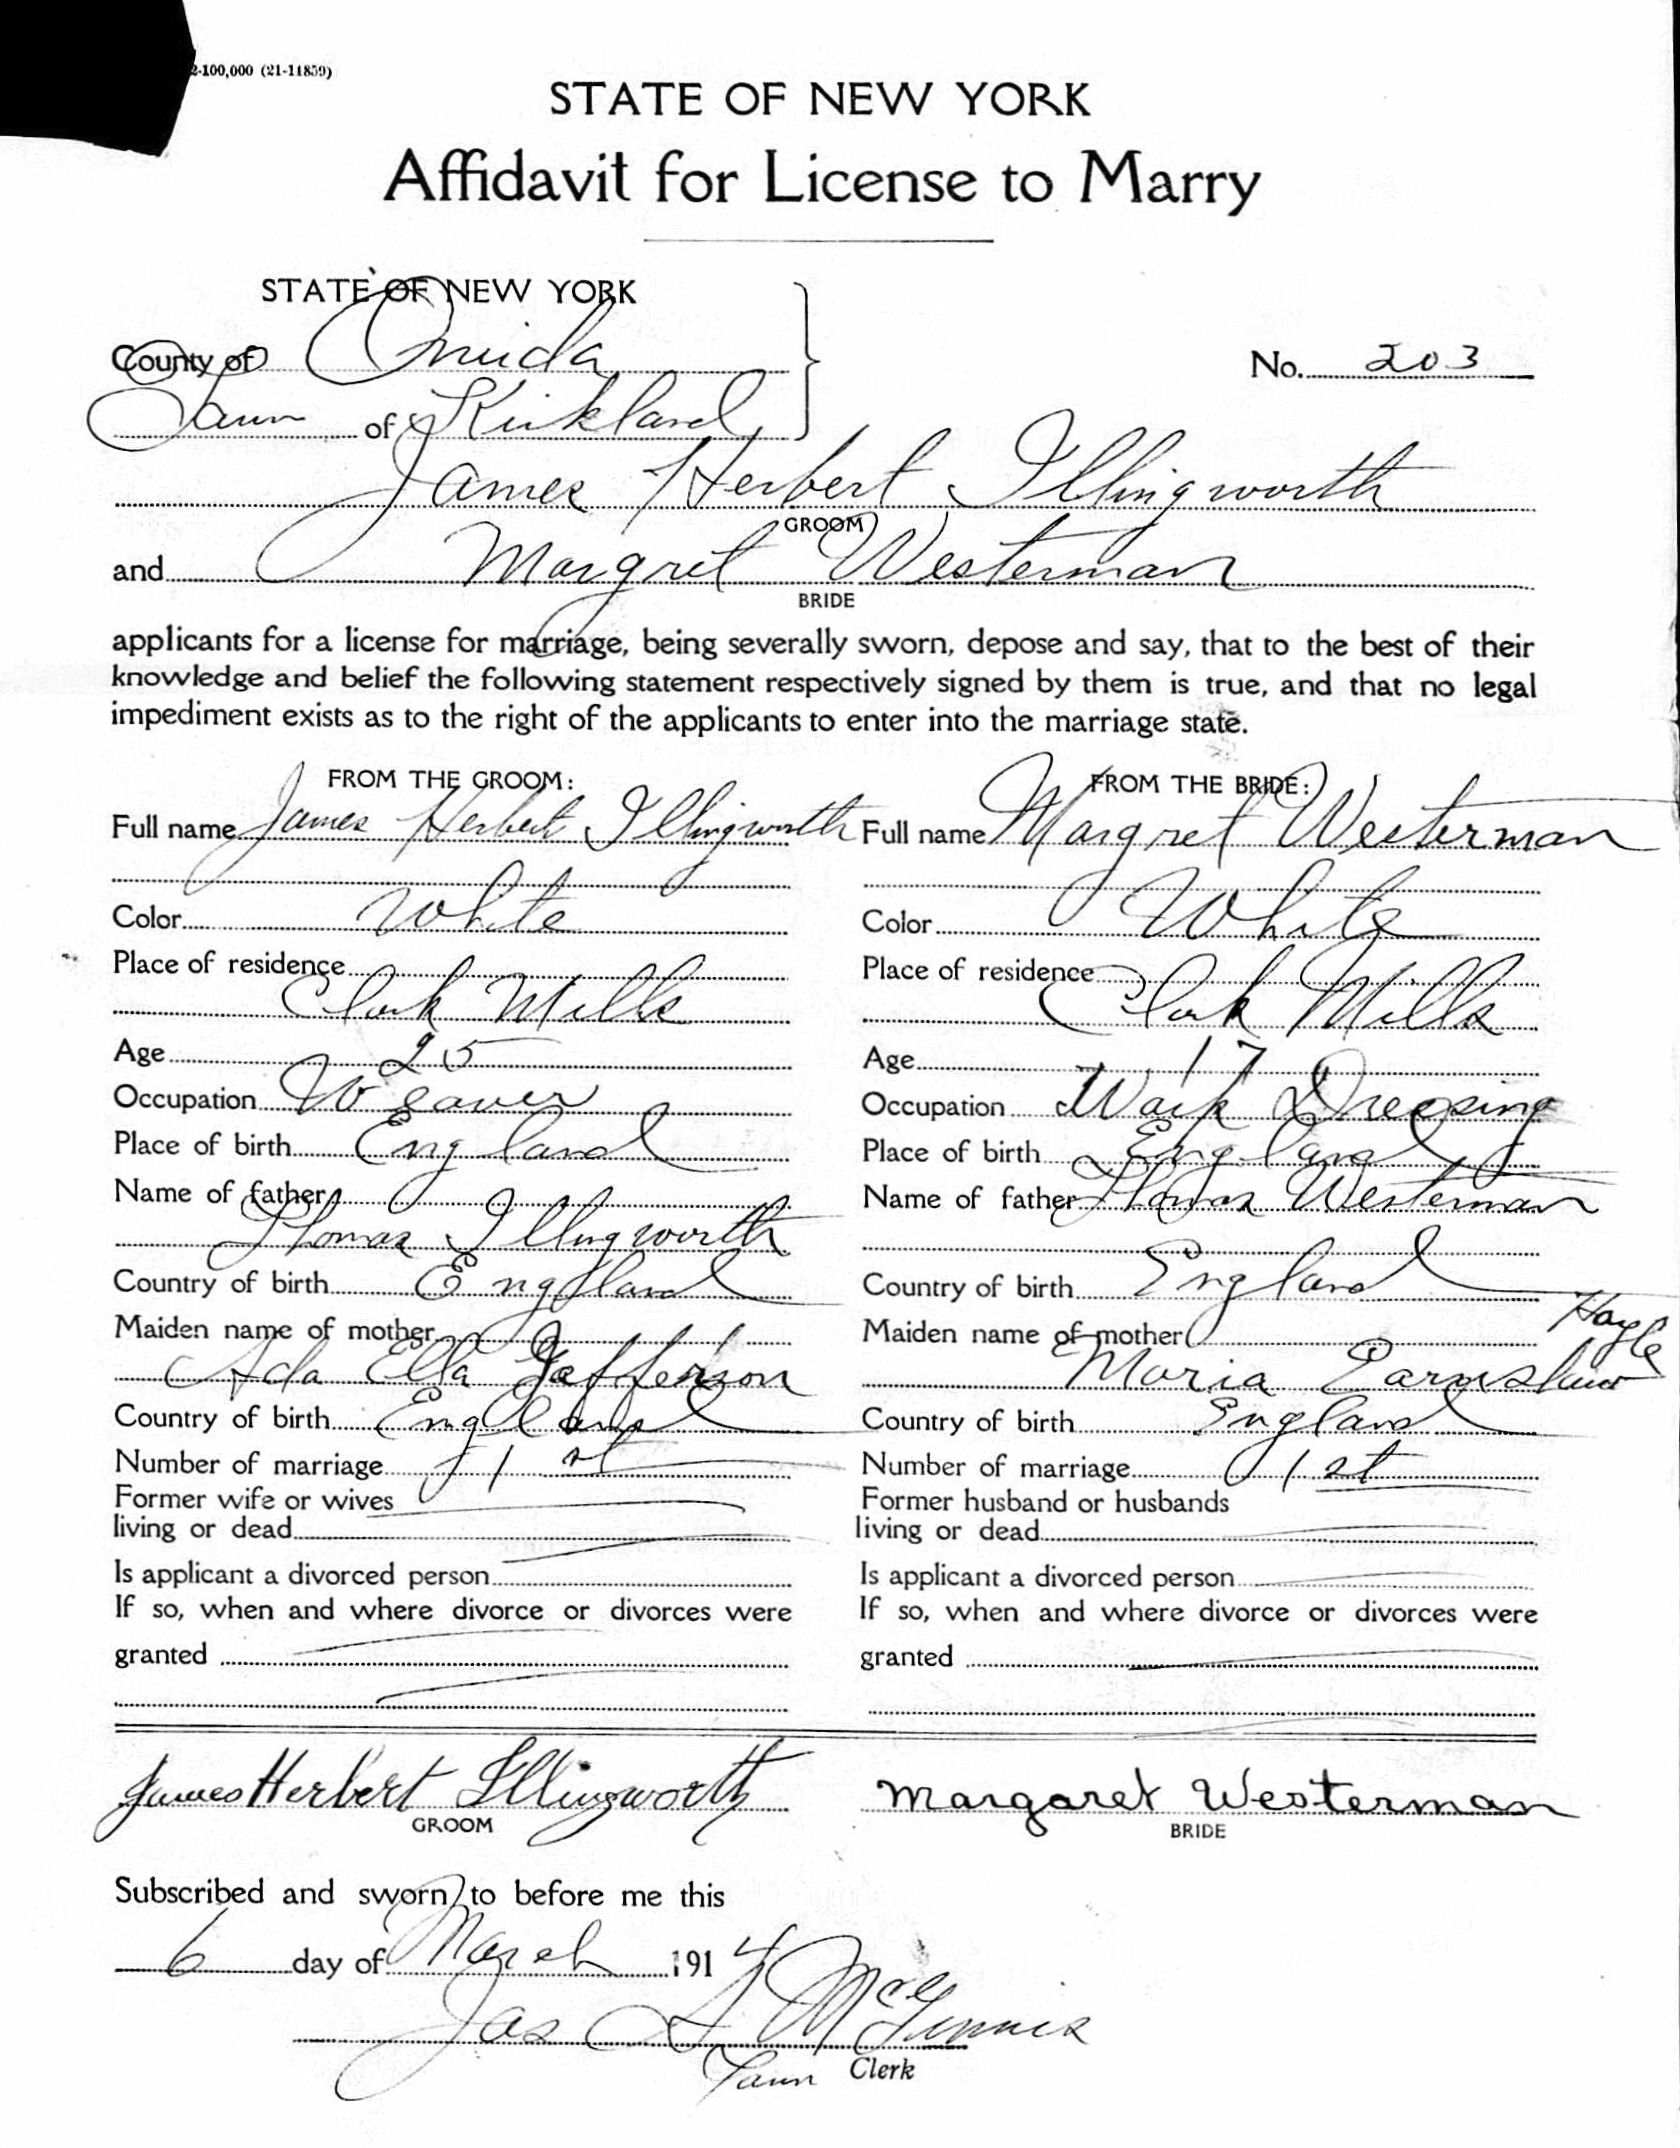 2-100,000 (21-11859)
STATE OF NEW YORK
Affidavit for License to Marry
STATE OF NEW YORK
County of Oneida
No. 203
Town of Kirkland
James Herbert Illingworth
GROOM
and Margret Westerman
BRIDE
applicants for a license for marriage, being severally sworn, depose and say, that to the best of their
knowledge and belief the following statement respectively signed by them is true, and that no legal
impediment exists as to the right of the applicants to enter into the marriage state.
FROM THE GROOM:
Full name James Herbert Illingworth
Color White
Place of residence
Clark Mills
Age 25
Occupation Weaver
Place of birth England
Name of father
Thomas Illingworth
Country of birth England
Maiden name of mother
Ada Ella Jefferson
Country of birth England
Number of marriage 1st
Former wife or wives
living or dead
Is applicant a divorced person
If so, when and where divorce or divorces were
granted
FROM THE BRIDE:
Full name Margret Westerman
Color White
Place of residence
Clark Mills
Age 17
Occupation Warp Dressing
Place of birth England
Name of father Thomas Westerman
Country of birth England
Maiden name of mother
Maria Earnshaw
Country of birth England
Number of marriage 1st
Former husband or husbands
living or dead
Is applicant a divorced person
If so, when and where divorce or divorces were
granted
James Herbert Illingworth
GROOM
Margaret Westerman
BRIDE
Subscribed and sworn to before me this
6 day of March 1914
Jas McGinnis
Town Clerk